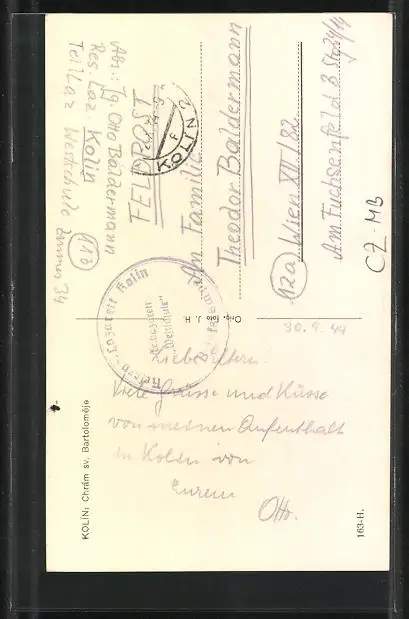 Abs.: Jg. Otto Baldermann
Res. Laz. Kolin
Teillaz Westschule Zimmer 34
11b
FELDPOST
KOLIN 2
An Familie
Theodor Baldermann
12a Wien XII/82
Am Fuchsenfeld 3 Stg 29/14
CZ-MB
Reserve-Lazarett Kolin
Teillazarett
"Westschule"
Orig. foto J. H.
30.9.44
Liebe Eltern!
Viele Grüsse und Küsse
von meinen Aufenthalt
in Kolin von
Eurem
Otto.
KOLÍN: Chrám sv. Bartoloměje
163-H.